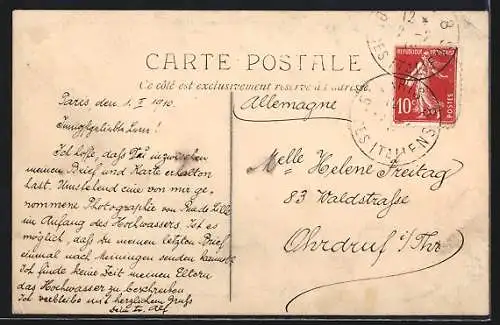 CARTE POSTALE
Ce côté est exclusivement réservé à l'adresse.
Paris, den 1. II 1910.
Allemagne
Innigstgeliebte Leni!
Ich hoffe, dass Du inzwischen
meinen Brief und Karte erhalten
hast. Umstehend eine von mir ge-
nommene Photographie von Rue de Lille
im Anfang des Hochwassers. Ist es
möglich, dass du meinen letzten Brief
einmal nach Meinungen senden kannst
Ich finde keine Zeit meinen Eltern
das Hochwasser zu beschreiben
Ich verbleibe mit herzlichem Gruss
Dein tr. Alf
Melle Helene Freitag
83 Waldstrasse
Ohrdruf i/Thr
REPUBLIQUE FRANÇAISE
10c
POSTES
12
8
DES ITALIENS